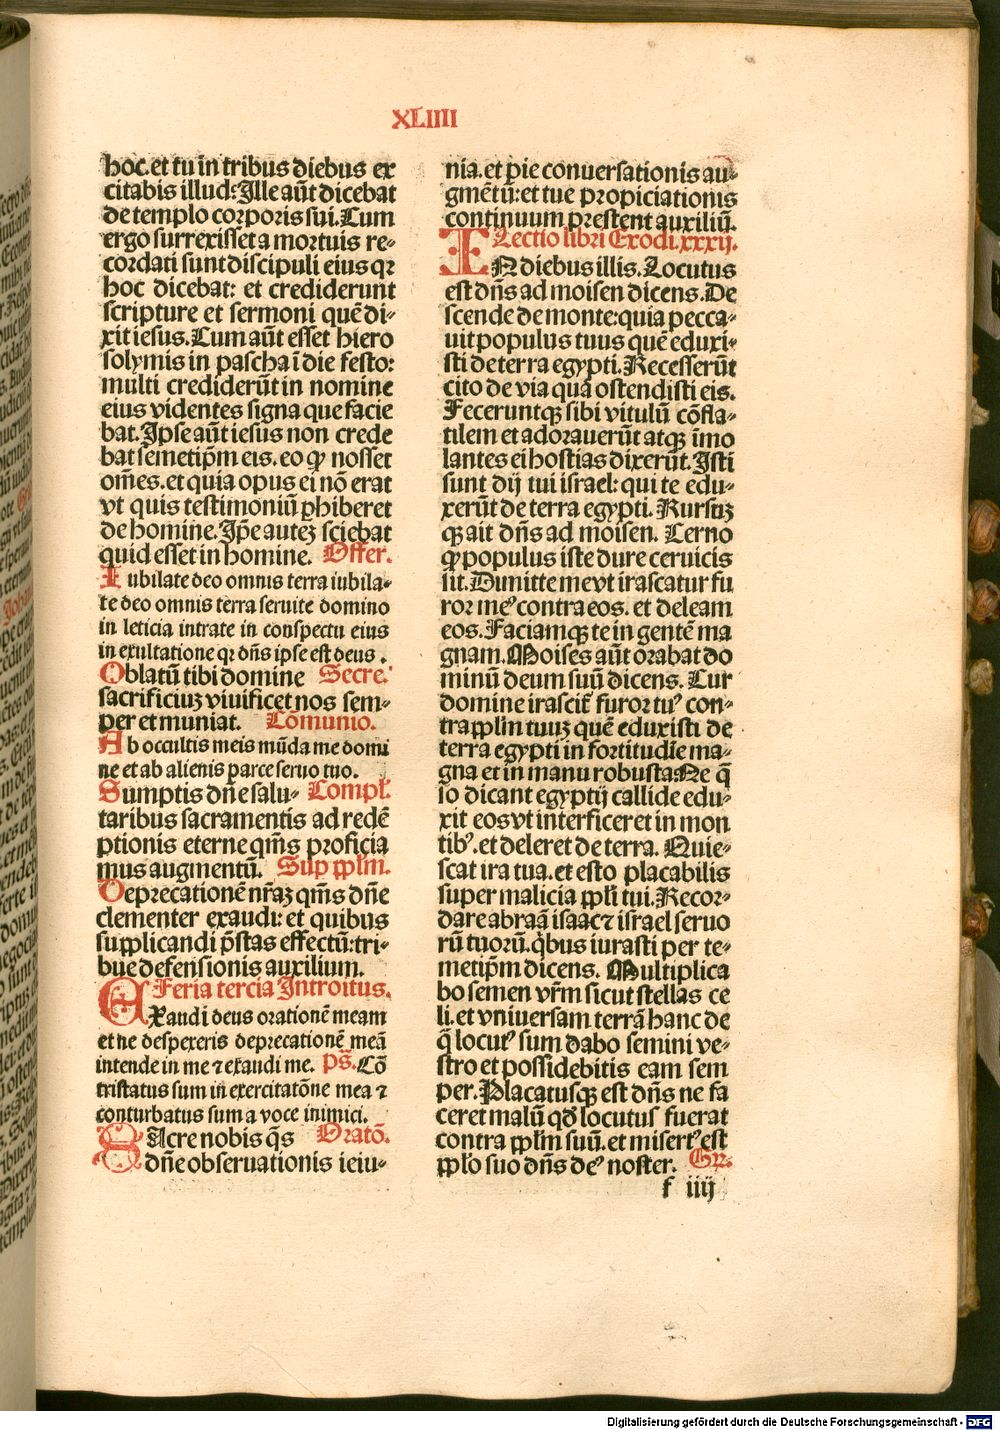 XLIIII
hoc. et tu in tribus diebus ex
citabis illud: Ille aūt dicebat
de templo corporis sui. Cum
ergo surrexisset a mortuis re-
cordati sunt discipuli eius qꝛ
hoc dicebat: et crediderunt
scripture et sermoni quē di-
xit iesus. Cum aūt esset hiero
solymis in pascha ī die festo:
multi crediderūt in nomine
eius videntes signa que facie
bat. Ipse aūt iesus non crede
bat semetip̄m eis. eo ꝙ nosset
om̄es. et quia opus ei nō erat
vt quis testimoniū ꝑhiberet
de homine. Ip̄e autez sciebat
quid esset in homine. Offer.
Iubilate deo omnis terra iubila-
te deo omnis terra seruite domino
in leticia intrate in conspectu eius
in exultatione qꝛ dn̄s ipse est deus.
Oblatū tibi domine Secre.
sacrificiuz viuificet nos sem-
per et muniat. Cōmunio.
Ab occultis meis mūda me domi
ne et ab alienis parce seruo tuo.
Sumptis dn̄e salu- Compl.
taribus sacramentis ad redē
ptionis eterne qm̄s proficia
mus augmentū. Sup ppl̄m.
Deprecationē nr̄aꝫ qm̄s dn̄e
clementer exaudi: et quibus
supplicandi p̄stas effectū: tri-
bue defensionis auxilium.
Feria tercia Introitus.
EXaudi deus orationē meam
et ne despexeris deprecationē meā
intende in me ⁊ exaudi me. ps̄. Cō
tristatus sum in exercitatōne mea ⁊
conturbatus sum a voce inimici.
SAcre nobis qs̄ Oratō.
dn̄e obseruationis ieiu-
nia. et pie conuersationis au-
gmētū: et tue propiciationis
continuum prestent auxiliū.
Lectio libri Exodi. xxxij.
IN diebus illis. Locutus
est dn̄s ad moisen dicens. De
scende de monte: quia pecca-
uit populus tuus quē eduxi-
sti de terra egypti. Recesserūt
cito de via quā ostendisti eis.
Feceruntqꝫ sibi vitulū cōfla-
tilem et adorauerūt atqꝫ īmo
lantes ei hostias dixerūt. Isti
sunt dij tui israel: qui te edu-
xerūt de terra egypti. Rursuz
qꝫ ait dn̄s ad moisen. Cerno
ꝙ populus iste dure ceruicis
sit. Dimitte me vt irascatur fu
ror meꝰ contra eos. et deleam
eos. Faciamqꝫ te in gentē ma
gnam. Moises aūt orabat do
minū deum suū dicens. Cur
domine irascit᷑ furor tuꝰ con-
tra ppl̄m tuuz quē eduxisti de
terra egypti in fortitudīe ma-
gna et in manu robusta: Ne q̄
so dicant egyptij callide edu-
xit eos vt interficeret in mon
tibꝰ. et deleret de terra. Quie-
scat ira tua. et esto placabilis
super malicia ppl̄i tui. Recor-
dare abraā isaac ⁊ israel seruo
rū tuorū. qͥbus iurasti per te-
metip̄m dicens. Multiplica
bo semen vr̄m sicut stellas ce
li. et vniuersam terrā hanc de
q̄ locutꝰ sum dabo semini ve-
stro et possidebitis eam sem
per. Placatusqꝫ est dn̄s ne fa
ceret malū qd̄ locutus fuerat
contra ppl̄m suū. et misertꝰ est
ppl̄o suo dn̄s deꝰ noster. Gꝛ.
f iiij
Digitalisierung gefördert durch die Deutsche Forschungsgemeinschaft - DFG